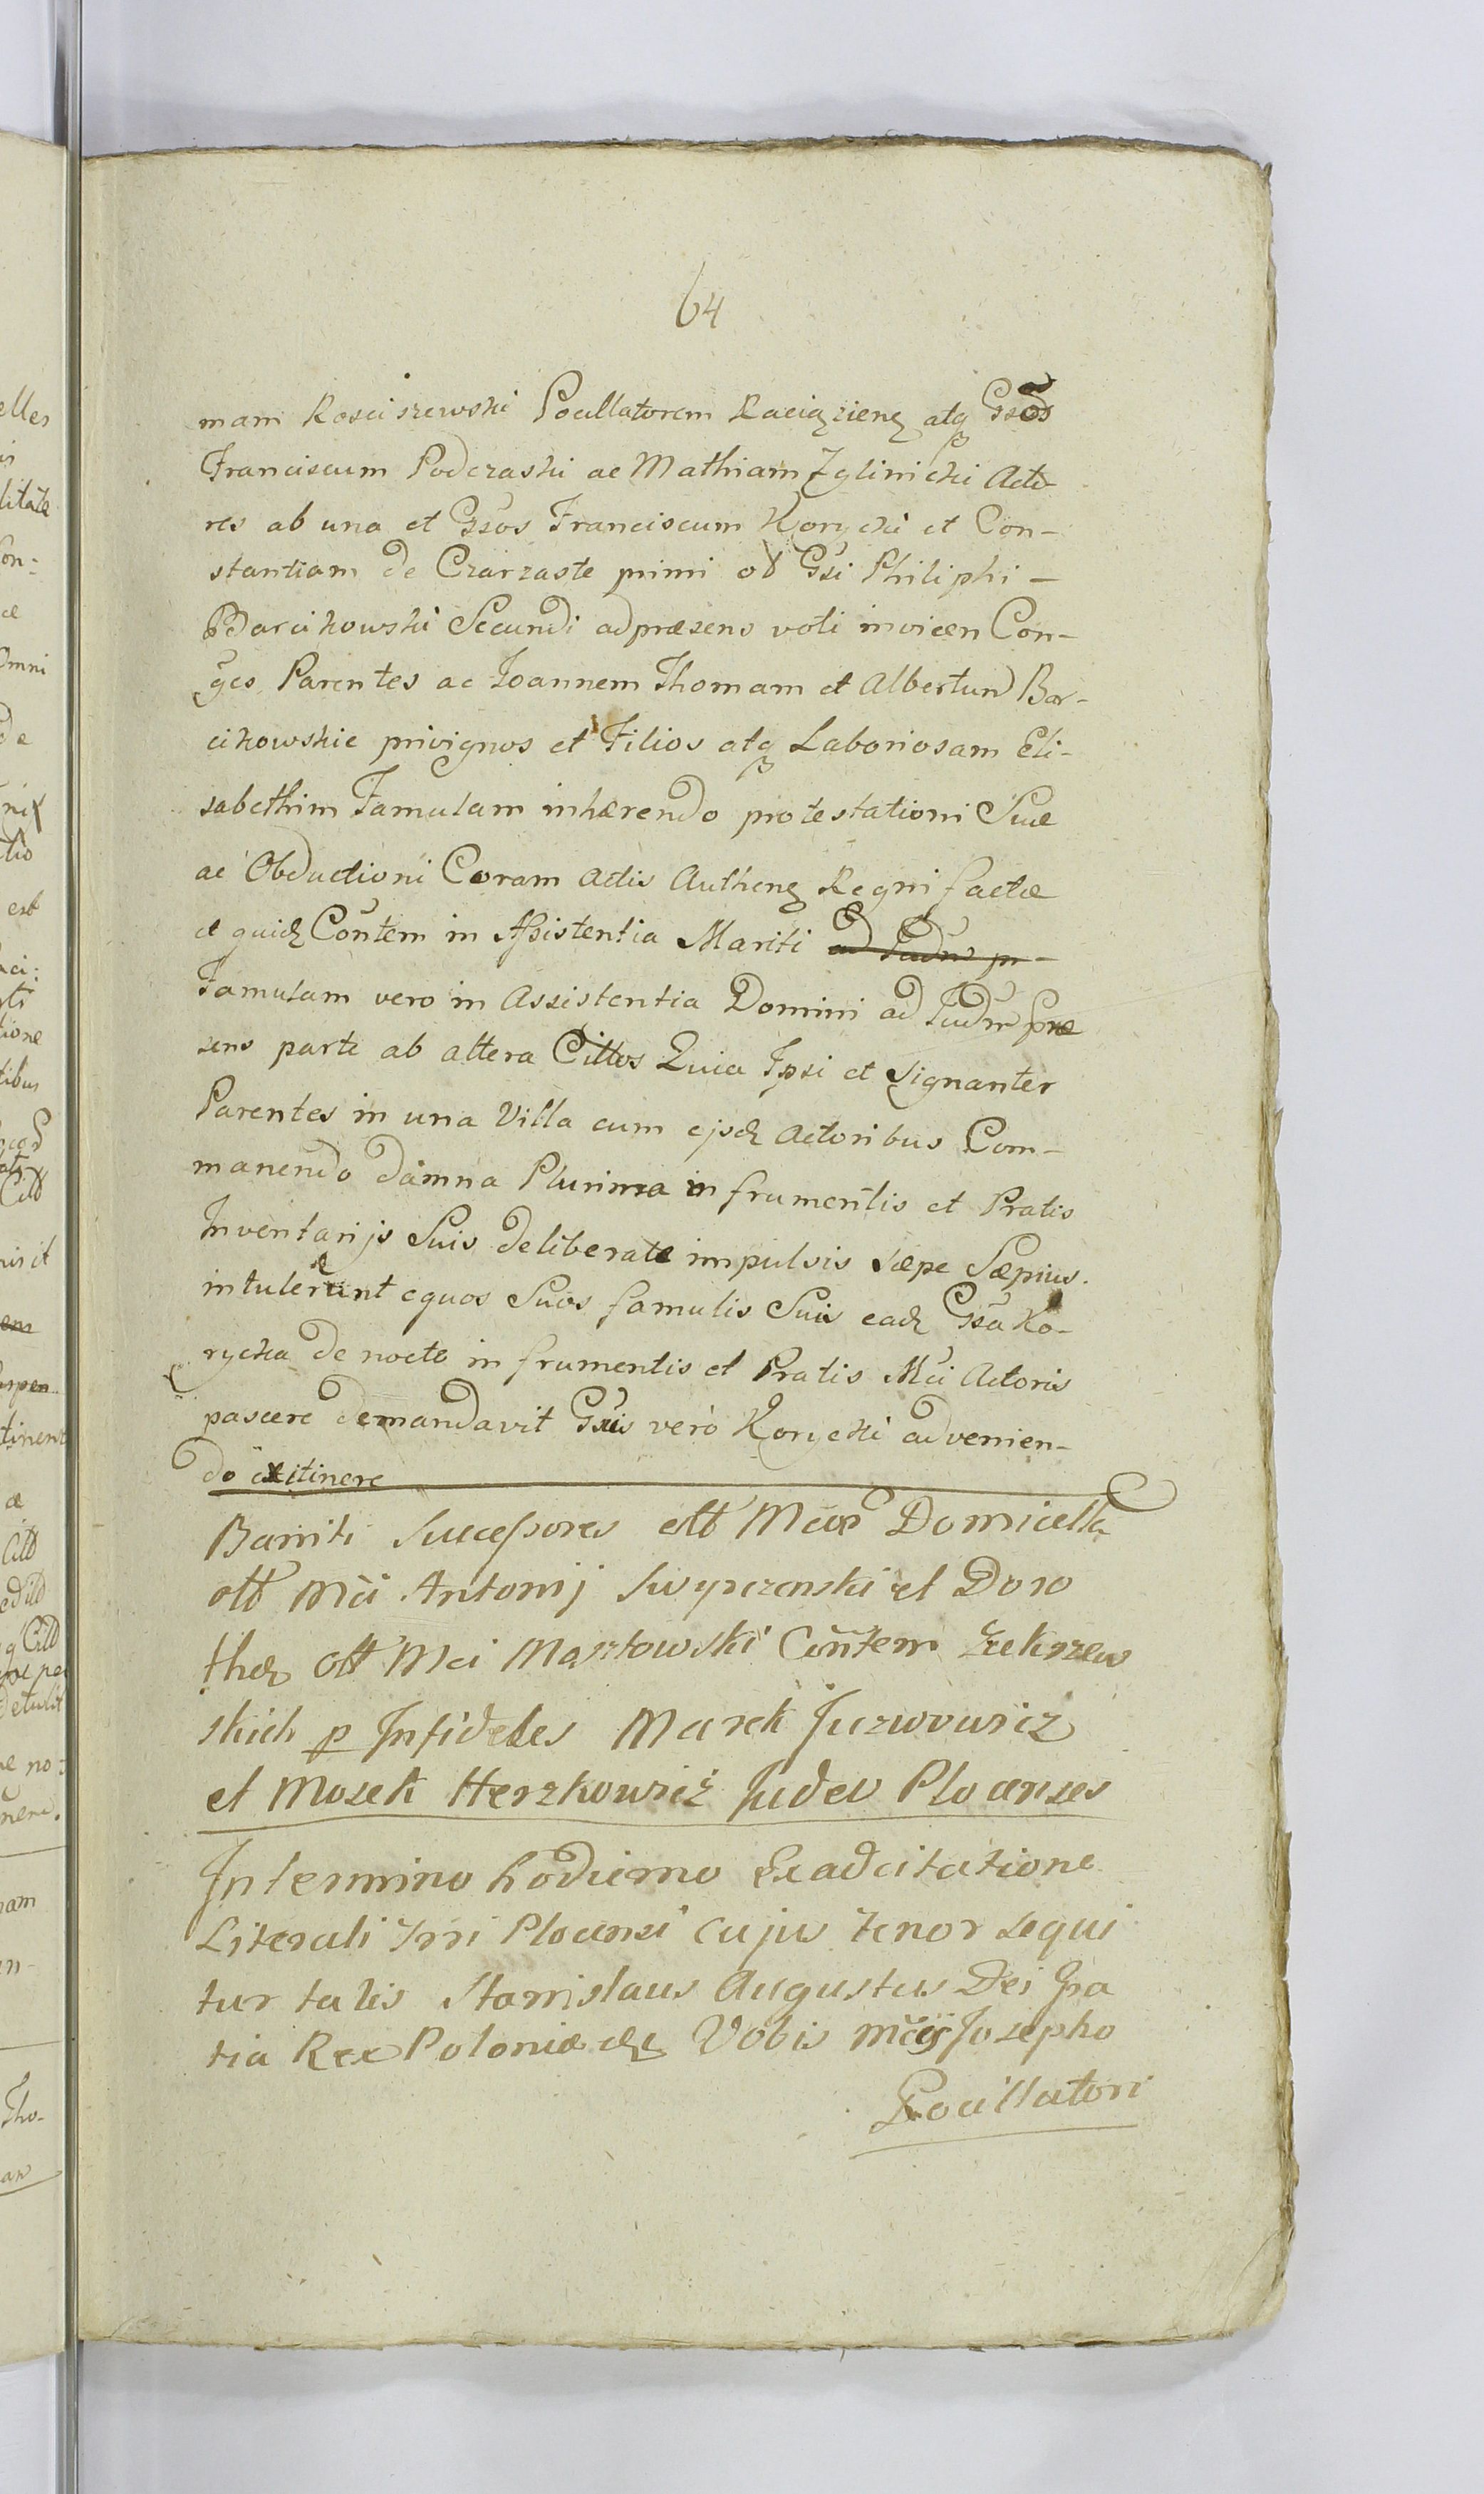 64
mam Kosciszewski Pocillatorem Raciązienę atq Gsos
Franciscum Podczaski ac Mathiam Zglinicki Acto
res ab una et Gsos Franciscum Korycki et Con-
stantiam de Czarzaste primi ob Gsi Philiphi -
Barcikowski Secundi adpræsens voti invicem Con-
ges Parentes ac Joannem Thomam et Albertum Bar-
cikowskie privignos et Filios atq Laboriosam Eli-
sabethim Famulam inhærendo protestationi Suæ
ac Obductioni Coram Actis Autheng Regni factæ
et quidz Contem in Assistentia Mariti
Famulam vero in Assistentia Domini ad Judm præ
sens parte ab altera Cittos Quia Ipsi et Signanter
Parentes in una Villa cum ejsdz Actoribus Com-
manendo damna Plurima in frumentis et Pratis
Inventarijs Suis deliberate impulsis sæpe Sæpius.
intulerunt equos Suos famulis Suis eadz Gsa Ko-
rycka de nocte in frumentis et Pratis Mci Actoris
pascere demandavit Gsus vero Korycki advenien-
do exitinere
Banniti Successores olb Mcor Domicella
olb Mci Antonij Swyrczenski et Doro
thez olb Mci Maszlowski Contem Zukrzew
skich p Infideles Marek Juzwowicz
et Mosek Herzkowicz Judeos Plocenses
In termino hodierno Exadcitatione
Literali Trri Plocensi cujus tenor sequi
tur talis Stanislaus Augustus Dei Gra
tia Rex Poloniæ etc Vobis Mcis Josepho
Pocillatori